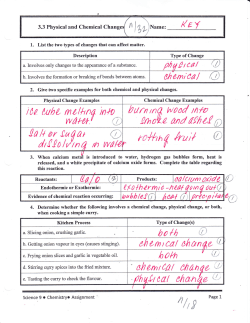 3.3 Physical and Chemical Changes
Name: KEY
1. List the two types of changes that can affect matter.
Description Type of Change
a. Involves only changes to the appearance of a substance. physical
b. Involves the formation or breaking of bonds between atoms. chemical
2. Give two specific examples for both chemical and physical changes.
Physical Change Examples Chemical Change Examples
ice cube melting into burning wood into
water smoke and ashes
Salt or sugar rotting fruit
dissolving in water
3. When calcium metal is introduced in water, hydrogen gas bubbles form, heat is
released, and a white precipitate of calcium oxide forms. Complete the table regarding
this reaction.
Reactants: Products: calcium oxide
Endothermic or Exothermic: Exothermic - heat going out
Evidence of chemical reaction occurring: bubbles heat precipitate
4. Determine whether the following involves a chemical change, physical change, or both,
when cooking a simple curry.
Kitchen Process Type of Change(s)
a. Slicing onion, crushing garlic. both
b. Getting onion vapour in eyes (causes stinging). chemical change
c. Frying onion slices and garlic in vegetable oil. both
d. Stirring curry spices into the fried mixture. chemical change
e. Tasting the curry to check the flavour. physical change
Science 9 Chemistry Assignment Page 1